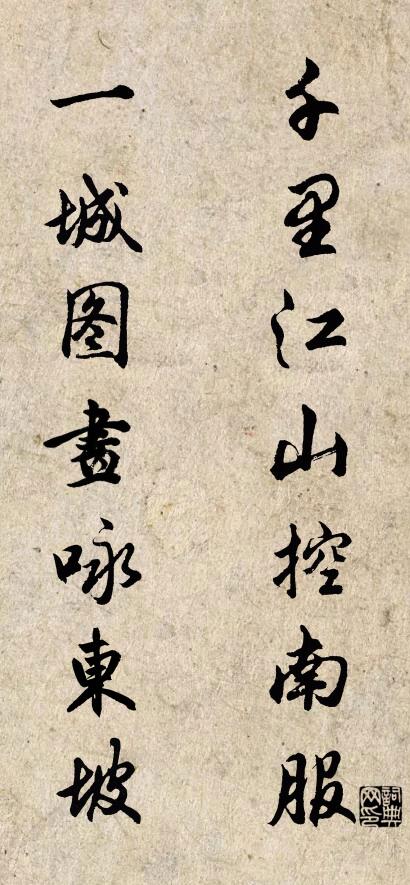 千里江山控南服
一城图畫咏東坡
詞典网印